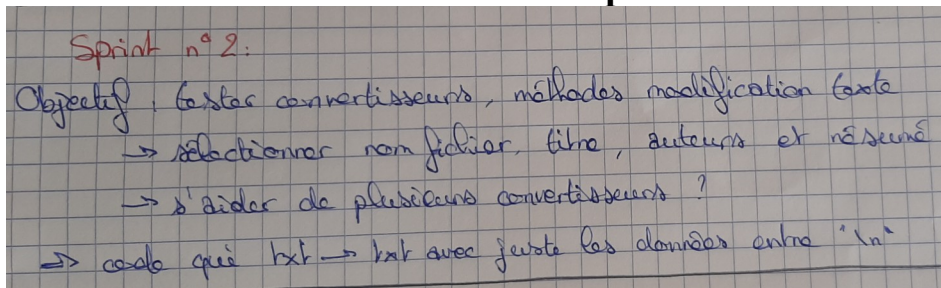 Sprint n° 2:
Objectif : tester convertisseurs, méthodes modification texte
→ sélectionner nom fichier, titre, auteurs et résumé
→ s'aider de plusieurs convertisseurs ?
⇒ code qui txt → txt avec juste les données entre "\n"